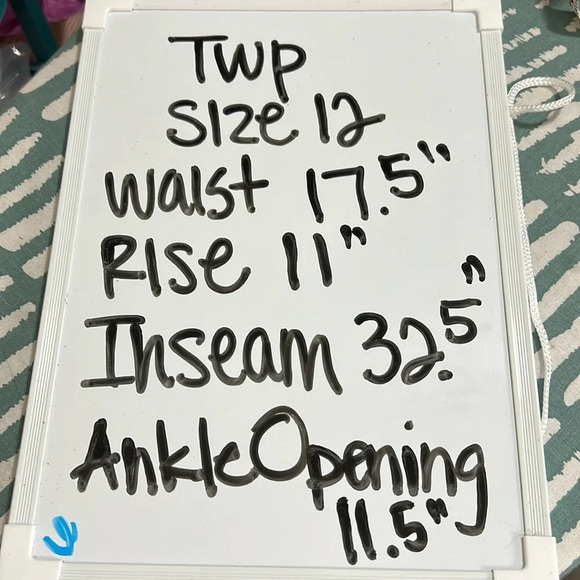 Twp
Size 12
Waist 17.5"
Rise 11"
Inseam 32.5"
Ankle Opening
11.5"